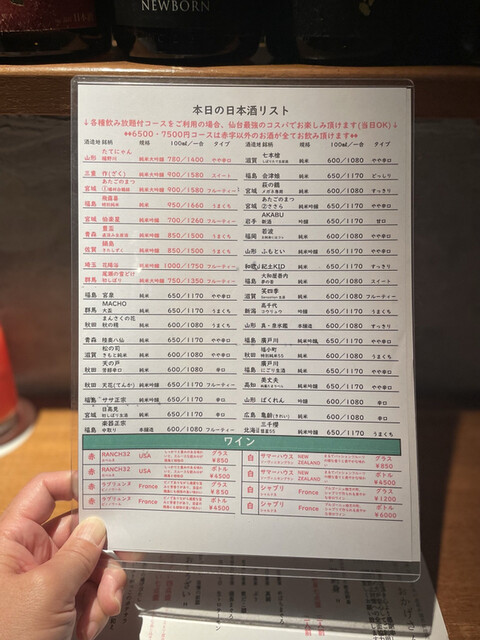 NEWBORN
本日の日本酒リスト
↓各種飲み放題付コースをご利用の場合、仙台最強のコスパでお楽しみ頂けます(当日OK)↓
**6500・7500円コースは赤字以外のお酒が全てお飲み頂けます**
酒造地 銘柄 規格 100㎖/一合 タイプ
山形 たてにゃん 純米大吟醸 780/1600 やや辛口
三重 作(ざく) 純米大吟醸 900/1580 スイート
宮城 あたごのまつ 純米大吟醸 900/1580 フルーティー
福島 飛露喜 特別純米 純米 950/1660 うまくち
宮城 伯楽星 純米吟醸 700/1260 フルーティー
青森 豊盃 純米吟醸 850/1500 うまくち
佐賀 鍋島 純米吟醸 850/1500 うまくち
埼玉 花陽浴 純米吟醸 1000/1750 フルーティー
群馬 尾瀬の雪どけ 純米大吟醸 750/1350 フルーティー
福島 宮泉 純米 650/1170 やや辛口
群馬 MACHO 純米 650/1170 うまくち
秋田 まんさくの花 純米 600/1080 うまくち
青森 陸奥八仙 純米 650/1170 やや辛口
滋賀 松の司 純米 600/1080 やや辛口
秋田 天の戸 純米 600/1080 辛口
秋田 天花(てんか) 純米吟醸 650/1170 フルーティー
福島 ササ正宗 純米吟醸 650/1170 やや辛口
宮城 日高見 純米 650/1170 辛口
福島 楽器正宗 中取り 本醸造 600/1080 フルーティー
酒造地 銘柄 規格 100㎖/一合 タイプ
滋賀 七本槍 純米 600/1080 やや辛口
福島 会津娘 純米 650/1170 どっしり
宮城 萩の鶴 純米 600/1080 すっきり
宮城 あたごのまつ ②ささら 純米吟醸 650/1170 やや辛口
岩手 AKABU 純米吟醸 650/1170 甘口
福岡 若波 純米 600/1080 やや辛口
山形 ふもとい 純米吟醸 650/1170 やや辛口
和歌山 紀土KID 純米 600/1080 すっきり
福島 大和屋善内 純米 600/1080 スイート
滋賀 笑四季 純米 600/1080 フルーティー
新潟 高千代 純米 650/1170 うまくち
山形 真・泉水蔵 本醸造 600/1080 すっきり
福島 廣戸川 純米吟醸 650/1170 やや辛口
秋田 福小町 純米 650/1170 やや辛口
福島 廣戸川 にごり生酒 純米 650/1170 うまくち
高知 美丈夫 純米 650/1170 やや辛口
山形 ばくれん 吟醸 600/1080 辛口
広島 亀齢(きれい) 純米 600/1080 辛口
北海道 三千櫻 純米 650/1170 うまくち
ワイン
赤 RANCH32 USA グラス ¥850
赤 RANCH32 USA ボトル ¥4500
赤 ラブリュンヌ France グラス ¥850
赤 ラブリュンヌ France ボトル ¥4500
白 サマーハウス NEW ZEALAND グラス ¥850
白 サマーハウス NEW ZEALAND ボトル ¥4500
白 シャブリ France グラス ¥1200
白 シャブリ France ボトル ¥6000